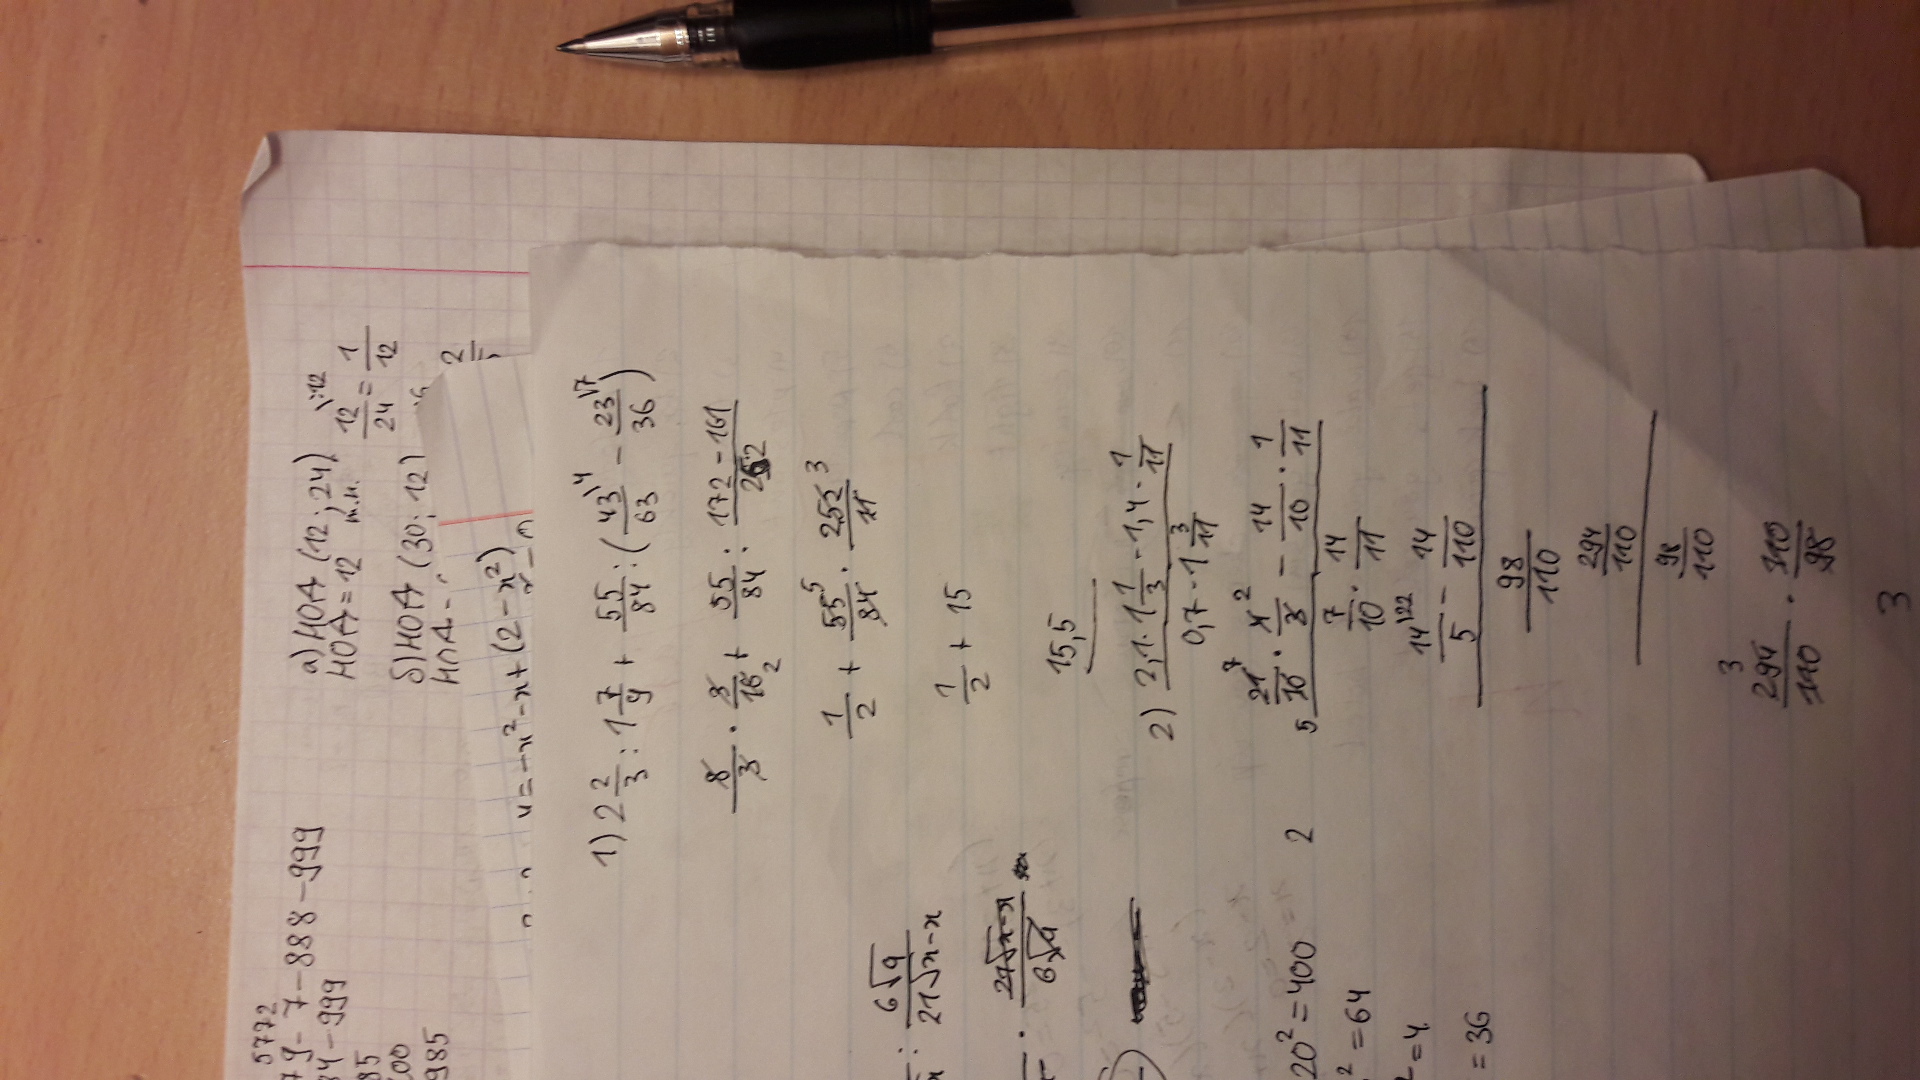 а) НОД (12; 24)
НОД = 12 т.к. 12/24 \:12 = 1/12
б) НОД (30; 12)
2
y = -x² - x + (2 - x²)
5772
79 - 7 - 888 - 999
34 - 999
85
985
1) 2 2/3 : 1 7/9 + 55/84 : (43\4/63 - 23\7/36)
8/3 · 9/16 2 + 55/84 : 172 - 161/252
1/2 + 55 5/84 · 252 3/11
1/2 + 15
15,5
2) 2,1 · 1 1/3 - 1,4 · 1/11
0,7 · 1 3/11
21 7/10 5 · 4 2/3 - 14/10 · 1/11
7/10 · 14/11
14\22/5 - 14/110
98/110
294/110
98/110
3 294/110 · 110/98
3
: 6√9/21√x - x
· 21√x - x/6√9
20² = 400 2
² = 64
² = 4
= 36